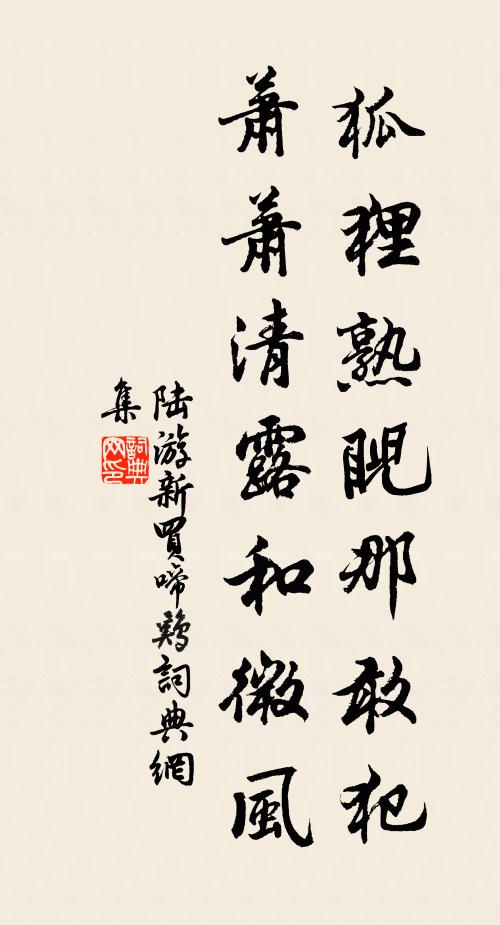 狐狸熟睨那敢犯
蕭蕭清露和微風
陸游新買啼鷄詞典網
集
詞典
网印